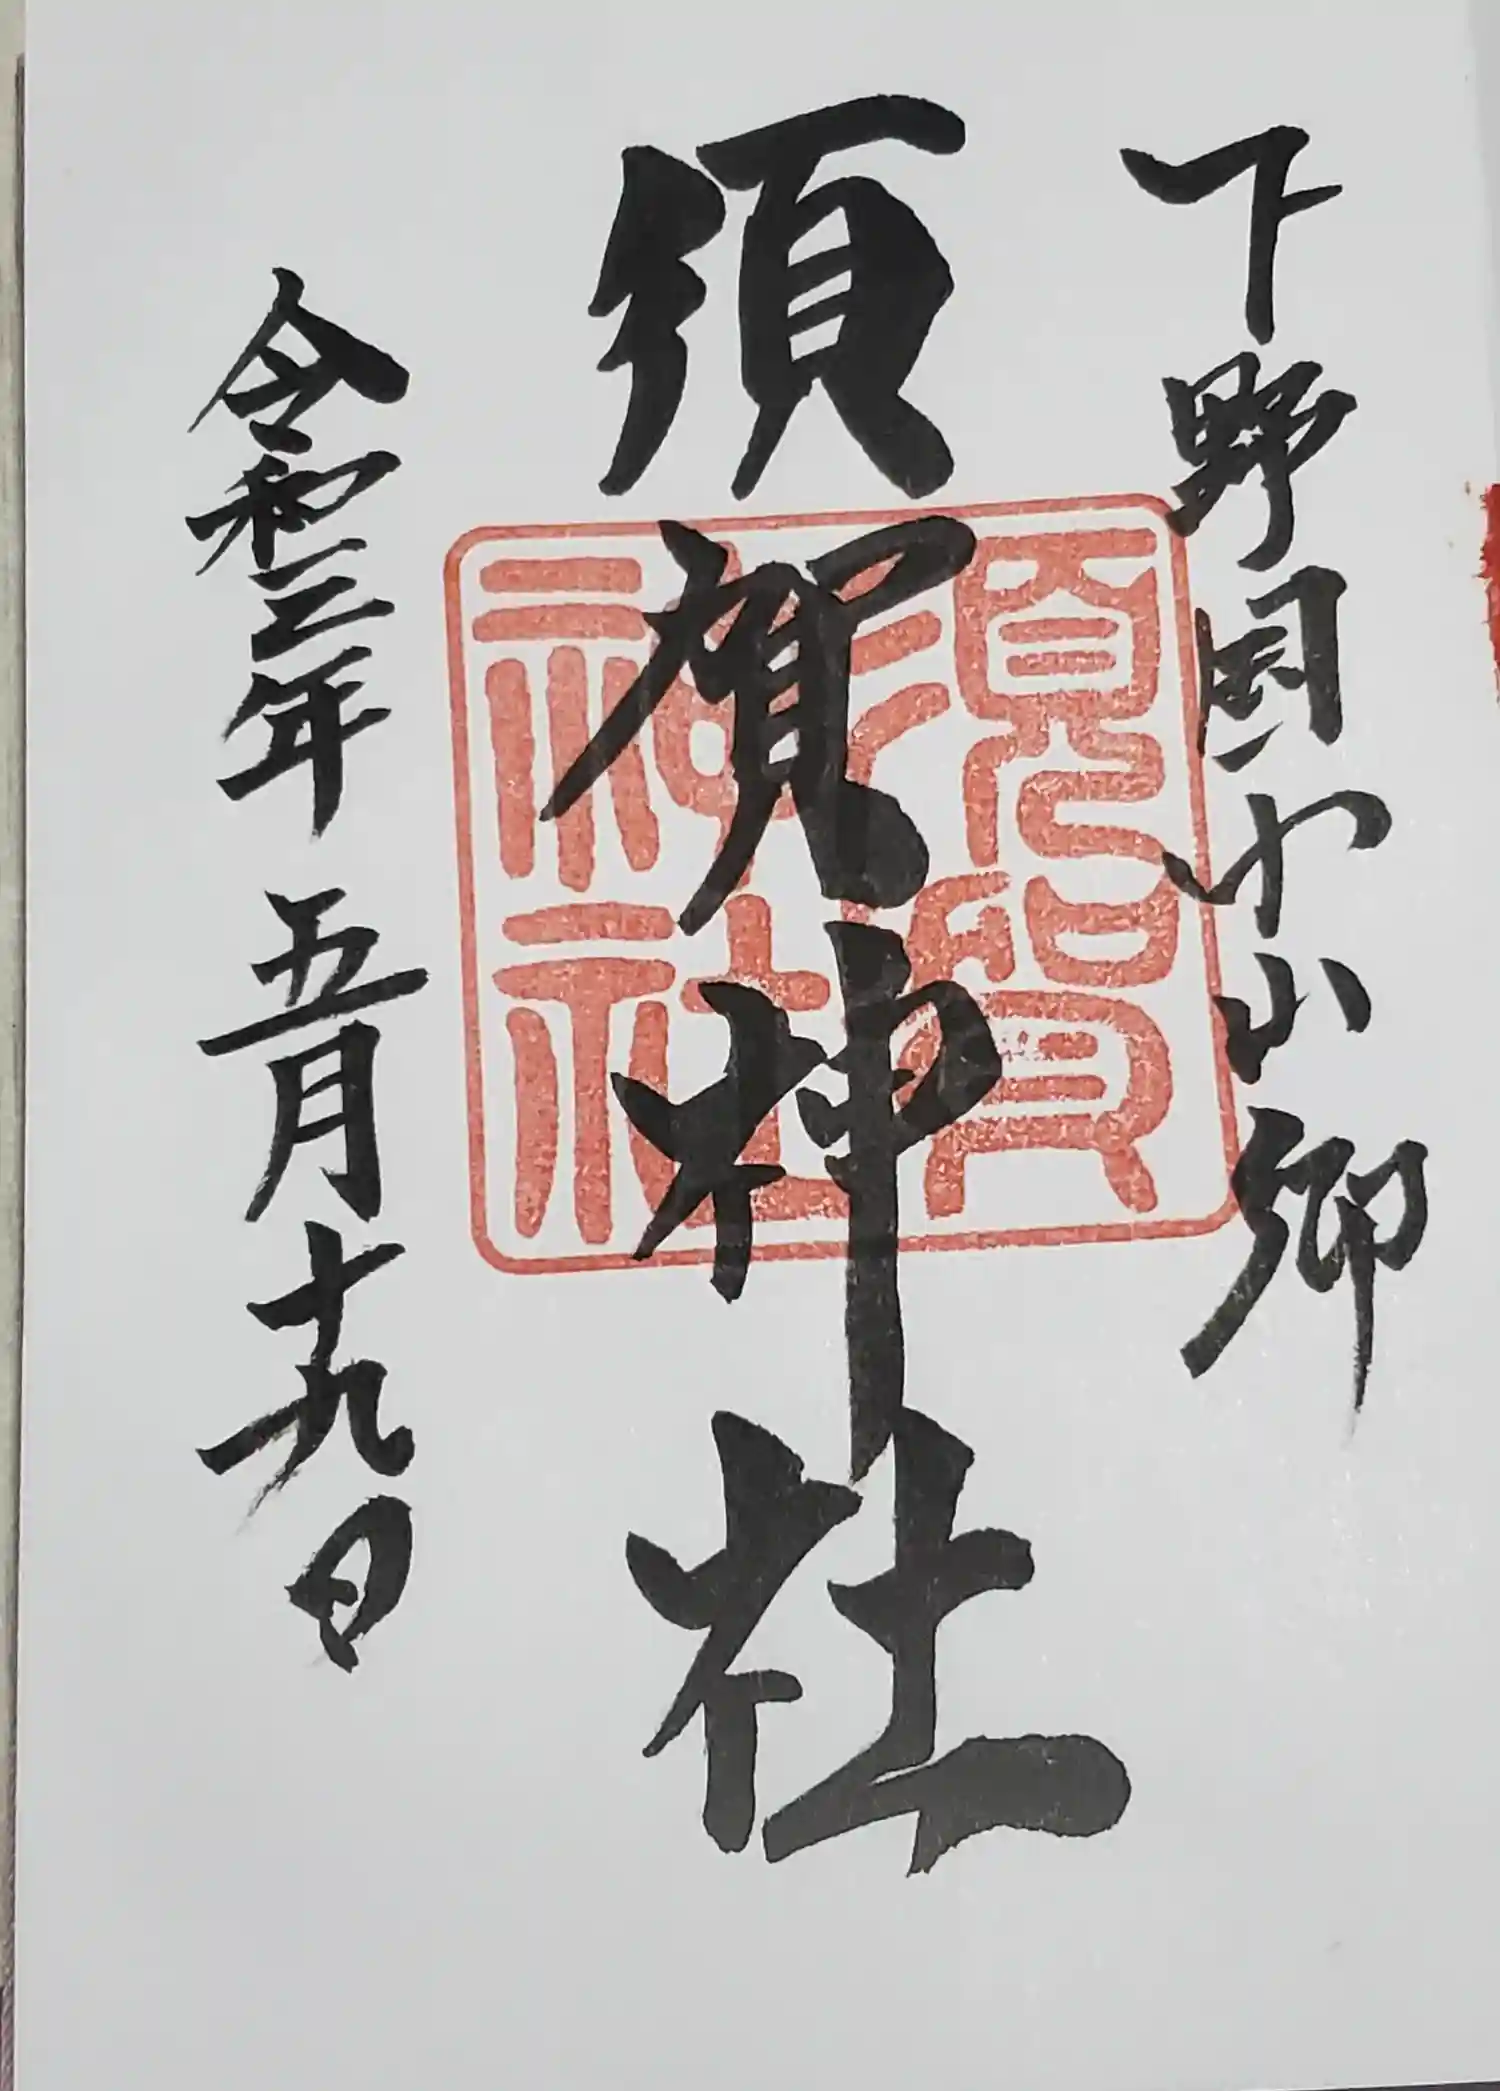 下野国小山郷
須賀神社
須賀
神社
令和三年五月十九日